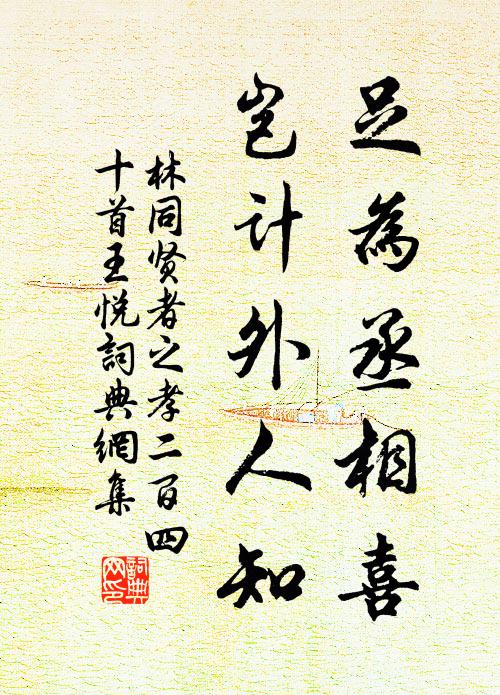 足為丞相喜
岂计外人知
林同贤者之孝二百四
十首王悦詞典網集
詞典
网印